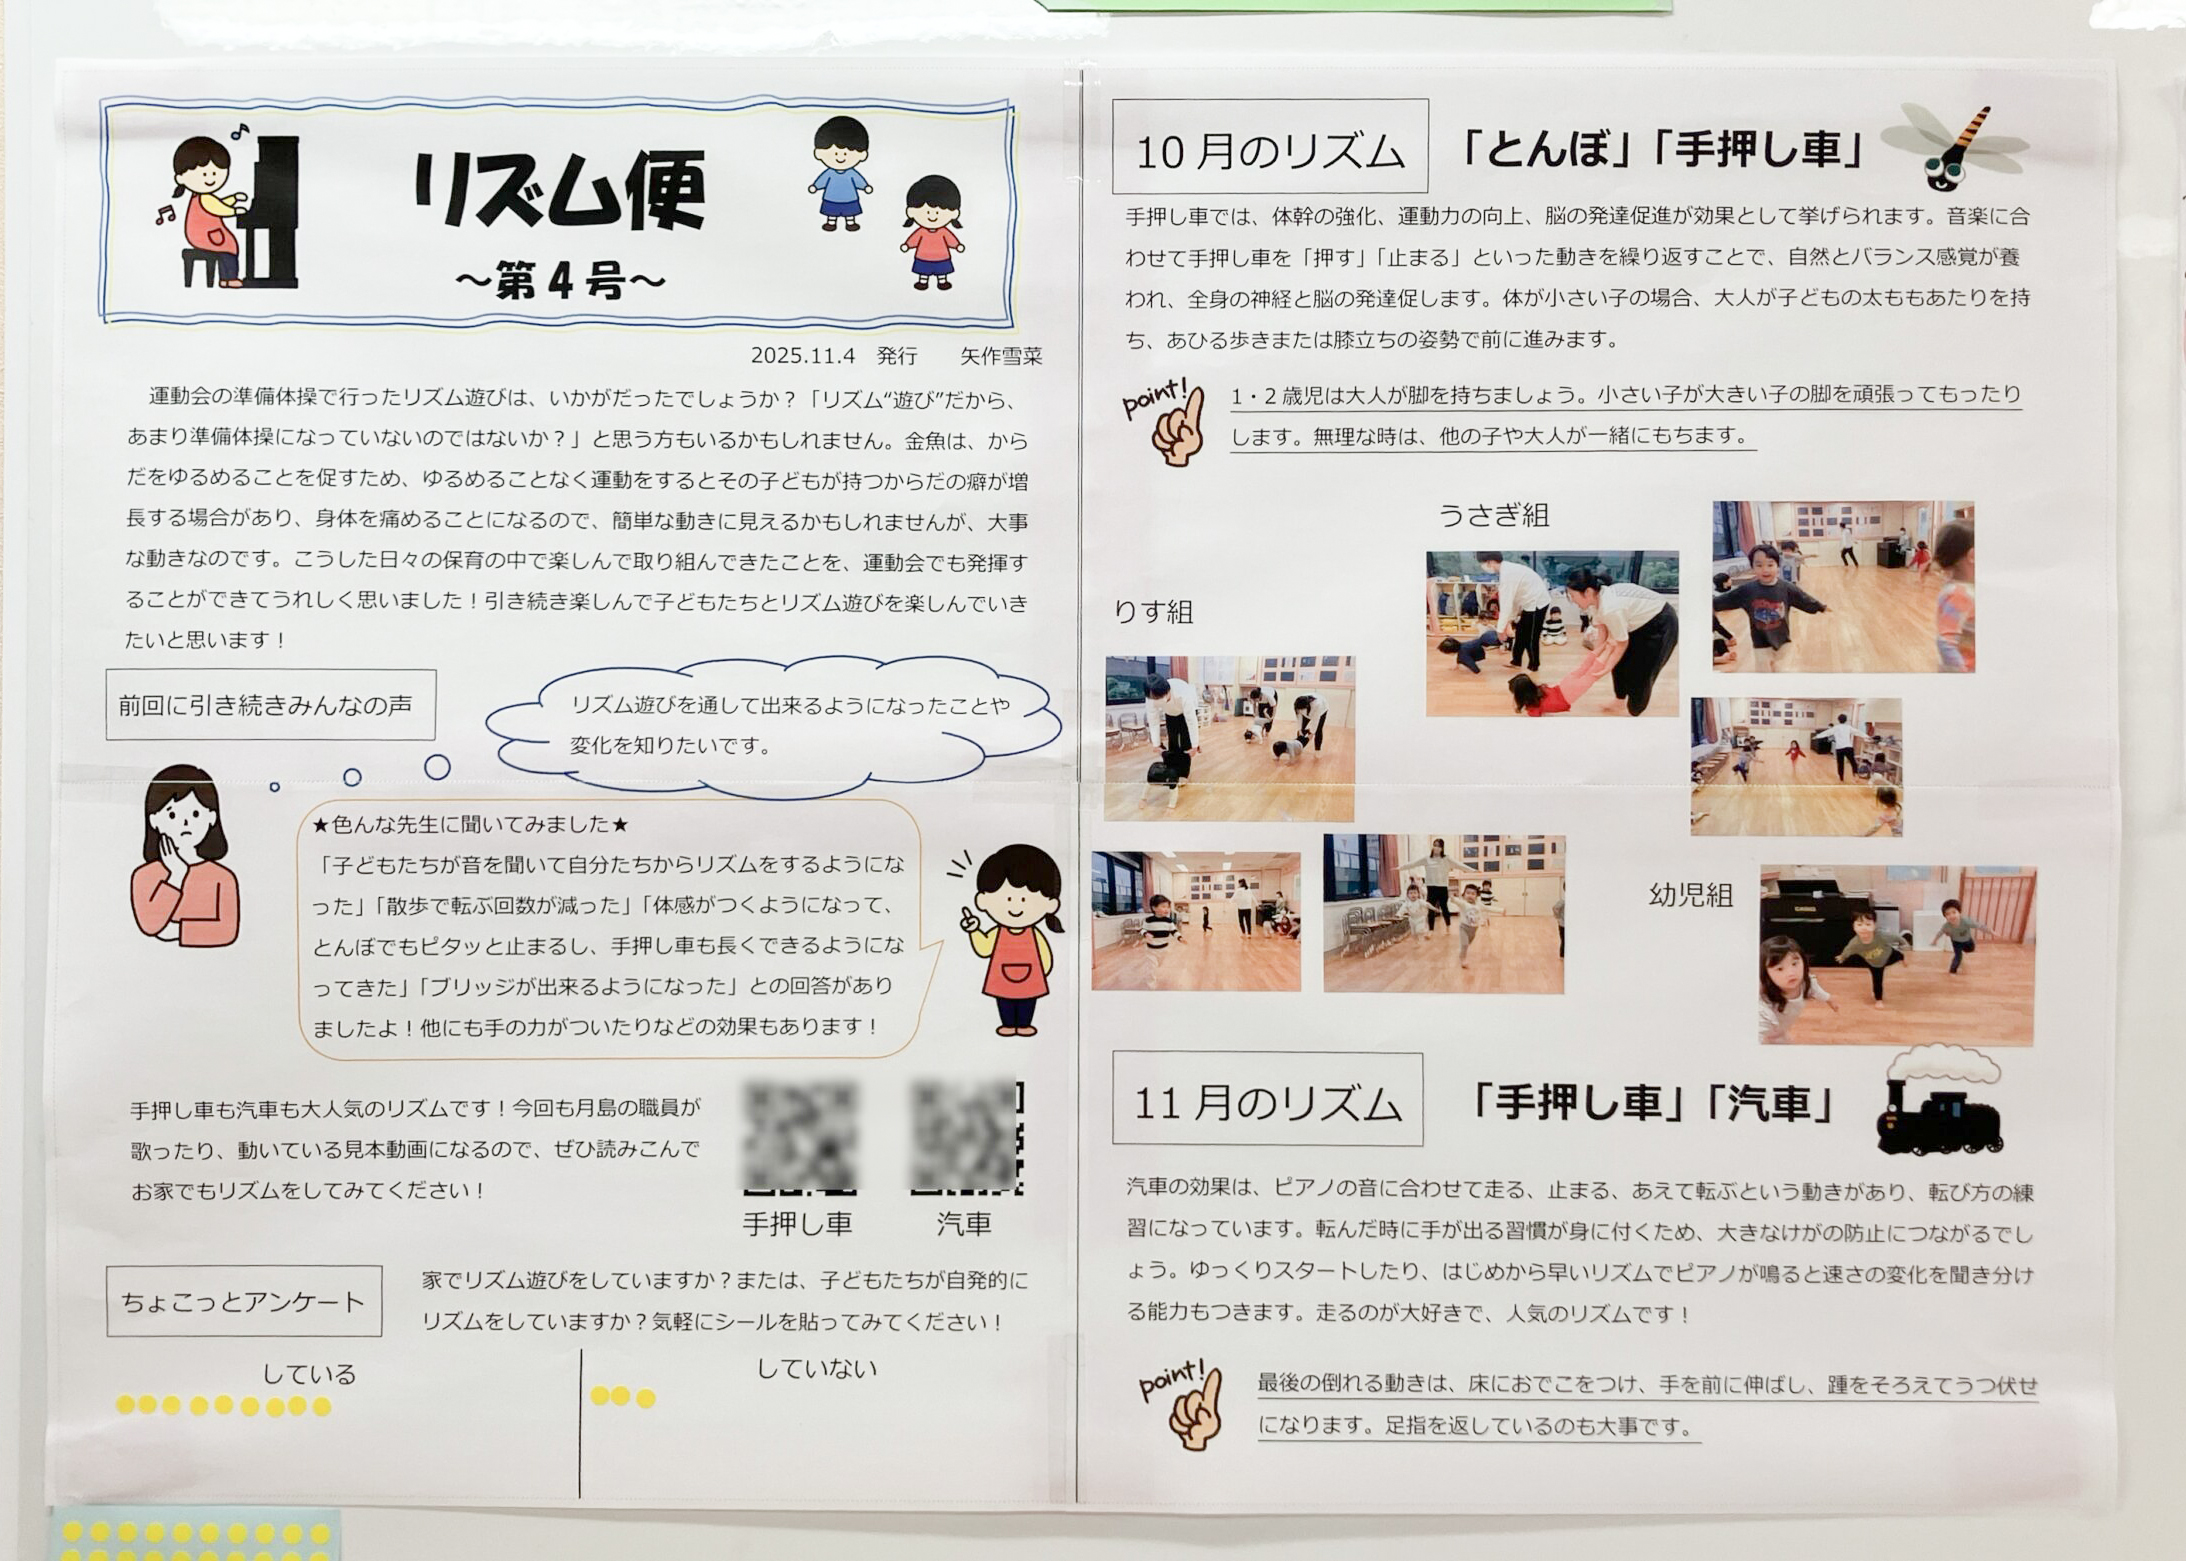 リズム便
～第4号～
2025.11.4　発行　　矢作雪菜
運動会の準備体操で行ったリズム遊びは、いかがだったでしょうか？「リズム“遊び”だから、
あまり準備体操になっていないのではないか？」と思う方もいるかもしれません。金魚は、から
だをゆるめることを促すため、ゆるめることなく運動をするとその子どもが持つからだの癖が増
長する場合があり、身体を痛めることになるので、簡単な動きに見えるかもしれませんが、大事
な動きなのです。こうした日々の保育の中で楽しんで取り組んできたことを、運動会でも発揮す
ることができてうれしく思いました！引き続き楽しんで子どもたちとリズム遊びを楽しんでいき
たいと思います！
前回に引き続きみんなの声
リズム遊びを通して出来るようになったことや
変化を知りたいです。
★色んな先生に聞いてみました★
「子どもたちが音を聞いて自分たちからリズムをするようにな
った」「散歩で転ぶ回数が減った」「体感がつくようになって、
とんぼでもピタッと止まるし、手押し車も長くできるようにな
ってきた」「ブリッジが出来るようになった」との回答があり
ましたよ！他にも手の力がついたりなどの効果もあります！
手押し車も汽車も大人気のリズムです！今回も月島の職員が
歌ったり、動いている見本動画になるので、ぜひ読みこんで
お家でもリズムをしてみてください！
手押し車
汽車
ちょこっとアンケート
家でリズム遊びをしていますか？または、子どもたちが自発的に
リズムをしていますか？気軽にシールを貼ってみてください！
している
していない
10月のリズム
「とんぼ」「手押し車」
手押し車では、体幹の強化、運動力の向上、脳の発達促進が効果として挙げられます。音楽に合
わせて手押し車を「押す」「止まる」といった動きを繰り返すことで、自然とバランス感覚が養
われ、全身の神経と脳の発達促します。体が小さい子の場合、大人が子どもの太ももあたりを持
ち、あひる歩きまたは膝立ちの姿勢で前に進みます。
point!
1・2歳児は大人が脚を持ちましょう。小さい子が大きい子の脚を頑張ってもったり
します。無理な時は、他の子や大人が一緒にもちます。
うさぎ組
りす組
幼児組
11月のリズム
「手押し車」「汽車」
汽車の効果は、ピアノの音に合わせて走る、止まる、あえて転ぶという動きがあり、転び方の練
習になっています。転んだ時に手が出る習慣が身に付くため、大きなけがの防止につながるでし
ょう。ゆっくりスタートしたり、はじめから早いリズムでピアノが鳴ると速さの変化を聞き分け
る能力もつきます。走るのが大好きで、人気のリズムです！
point!
最後の倒れる動きは、床におでこをつけ、手を前に伸ばし、踵をそろえてうつ伏せ
になります。足指を返しているのも大事です。